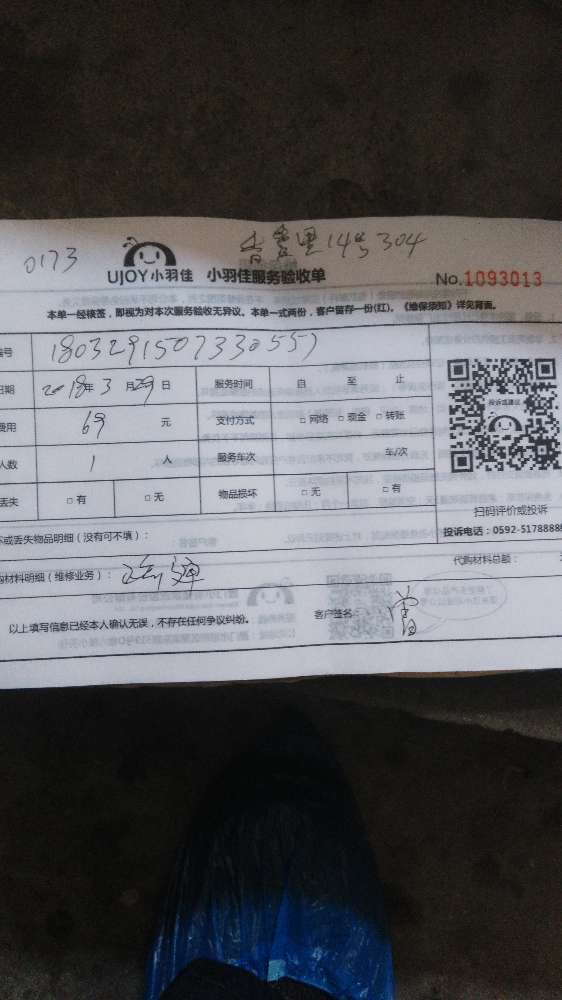 0173
14号304
UJOY小羽佳 小羽佳服务验收单
No.1093013
本单一经核签，即视为对本次服务验收无异议。本单一式两份，客户留存一份(红)。《维保须知》详见背面。
编号
日期 2018年3月29日 服务时间 自 至 止
费用 69 元 支付方式 □网络 □现金 □转账
人数 1 人 服务车次 车/次
丢失 □有 □无 物品损坏 □无 □有
投诉或建议
扫码评价或投诉
投诉电话：0592-5178888
坏或丢失物品明细（没有可不填）：
购材料明细（维修业务）： 代购材料总额：
以上填写信息已经本人确认无误，不存在任何争议纠纷。 客户签名： 曾